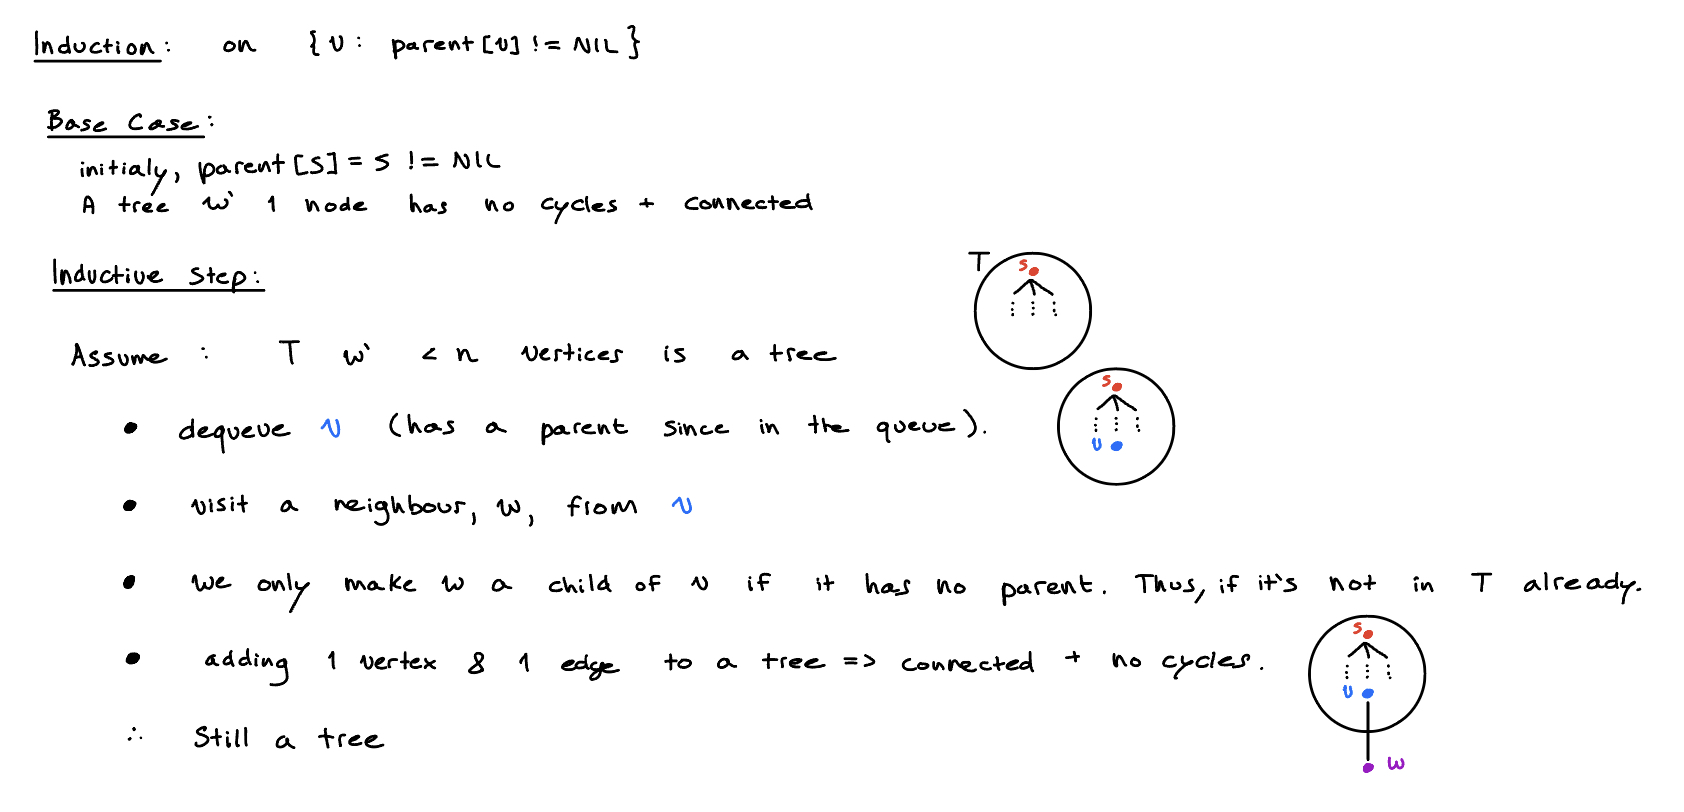 Induction: on {v: parent[v] != NIL}
Base Case:
initialy, parent[s] = s != NIL
A tree w` 1 node has no cycles + connected
Inductive Step:
T
s
Assume : T w` < n vertices is a tree
s
• dequeue v (has a parent since in the queue).
v
• visit a neighbour, w, from v
• we only make w a child of v if it has no parent. Thus, if it's not in T already.
s
• adding 1 vertex & 1 edge to a tree => connected + no cycles.
v
∴ Still a tree
w